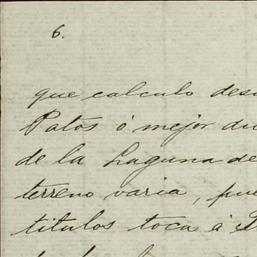 6.
que calculo desd
Patos ó mejor di
de la Laguna de
terreno varia, pue
titulos toca á